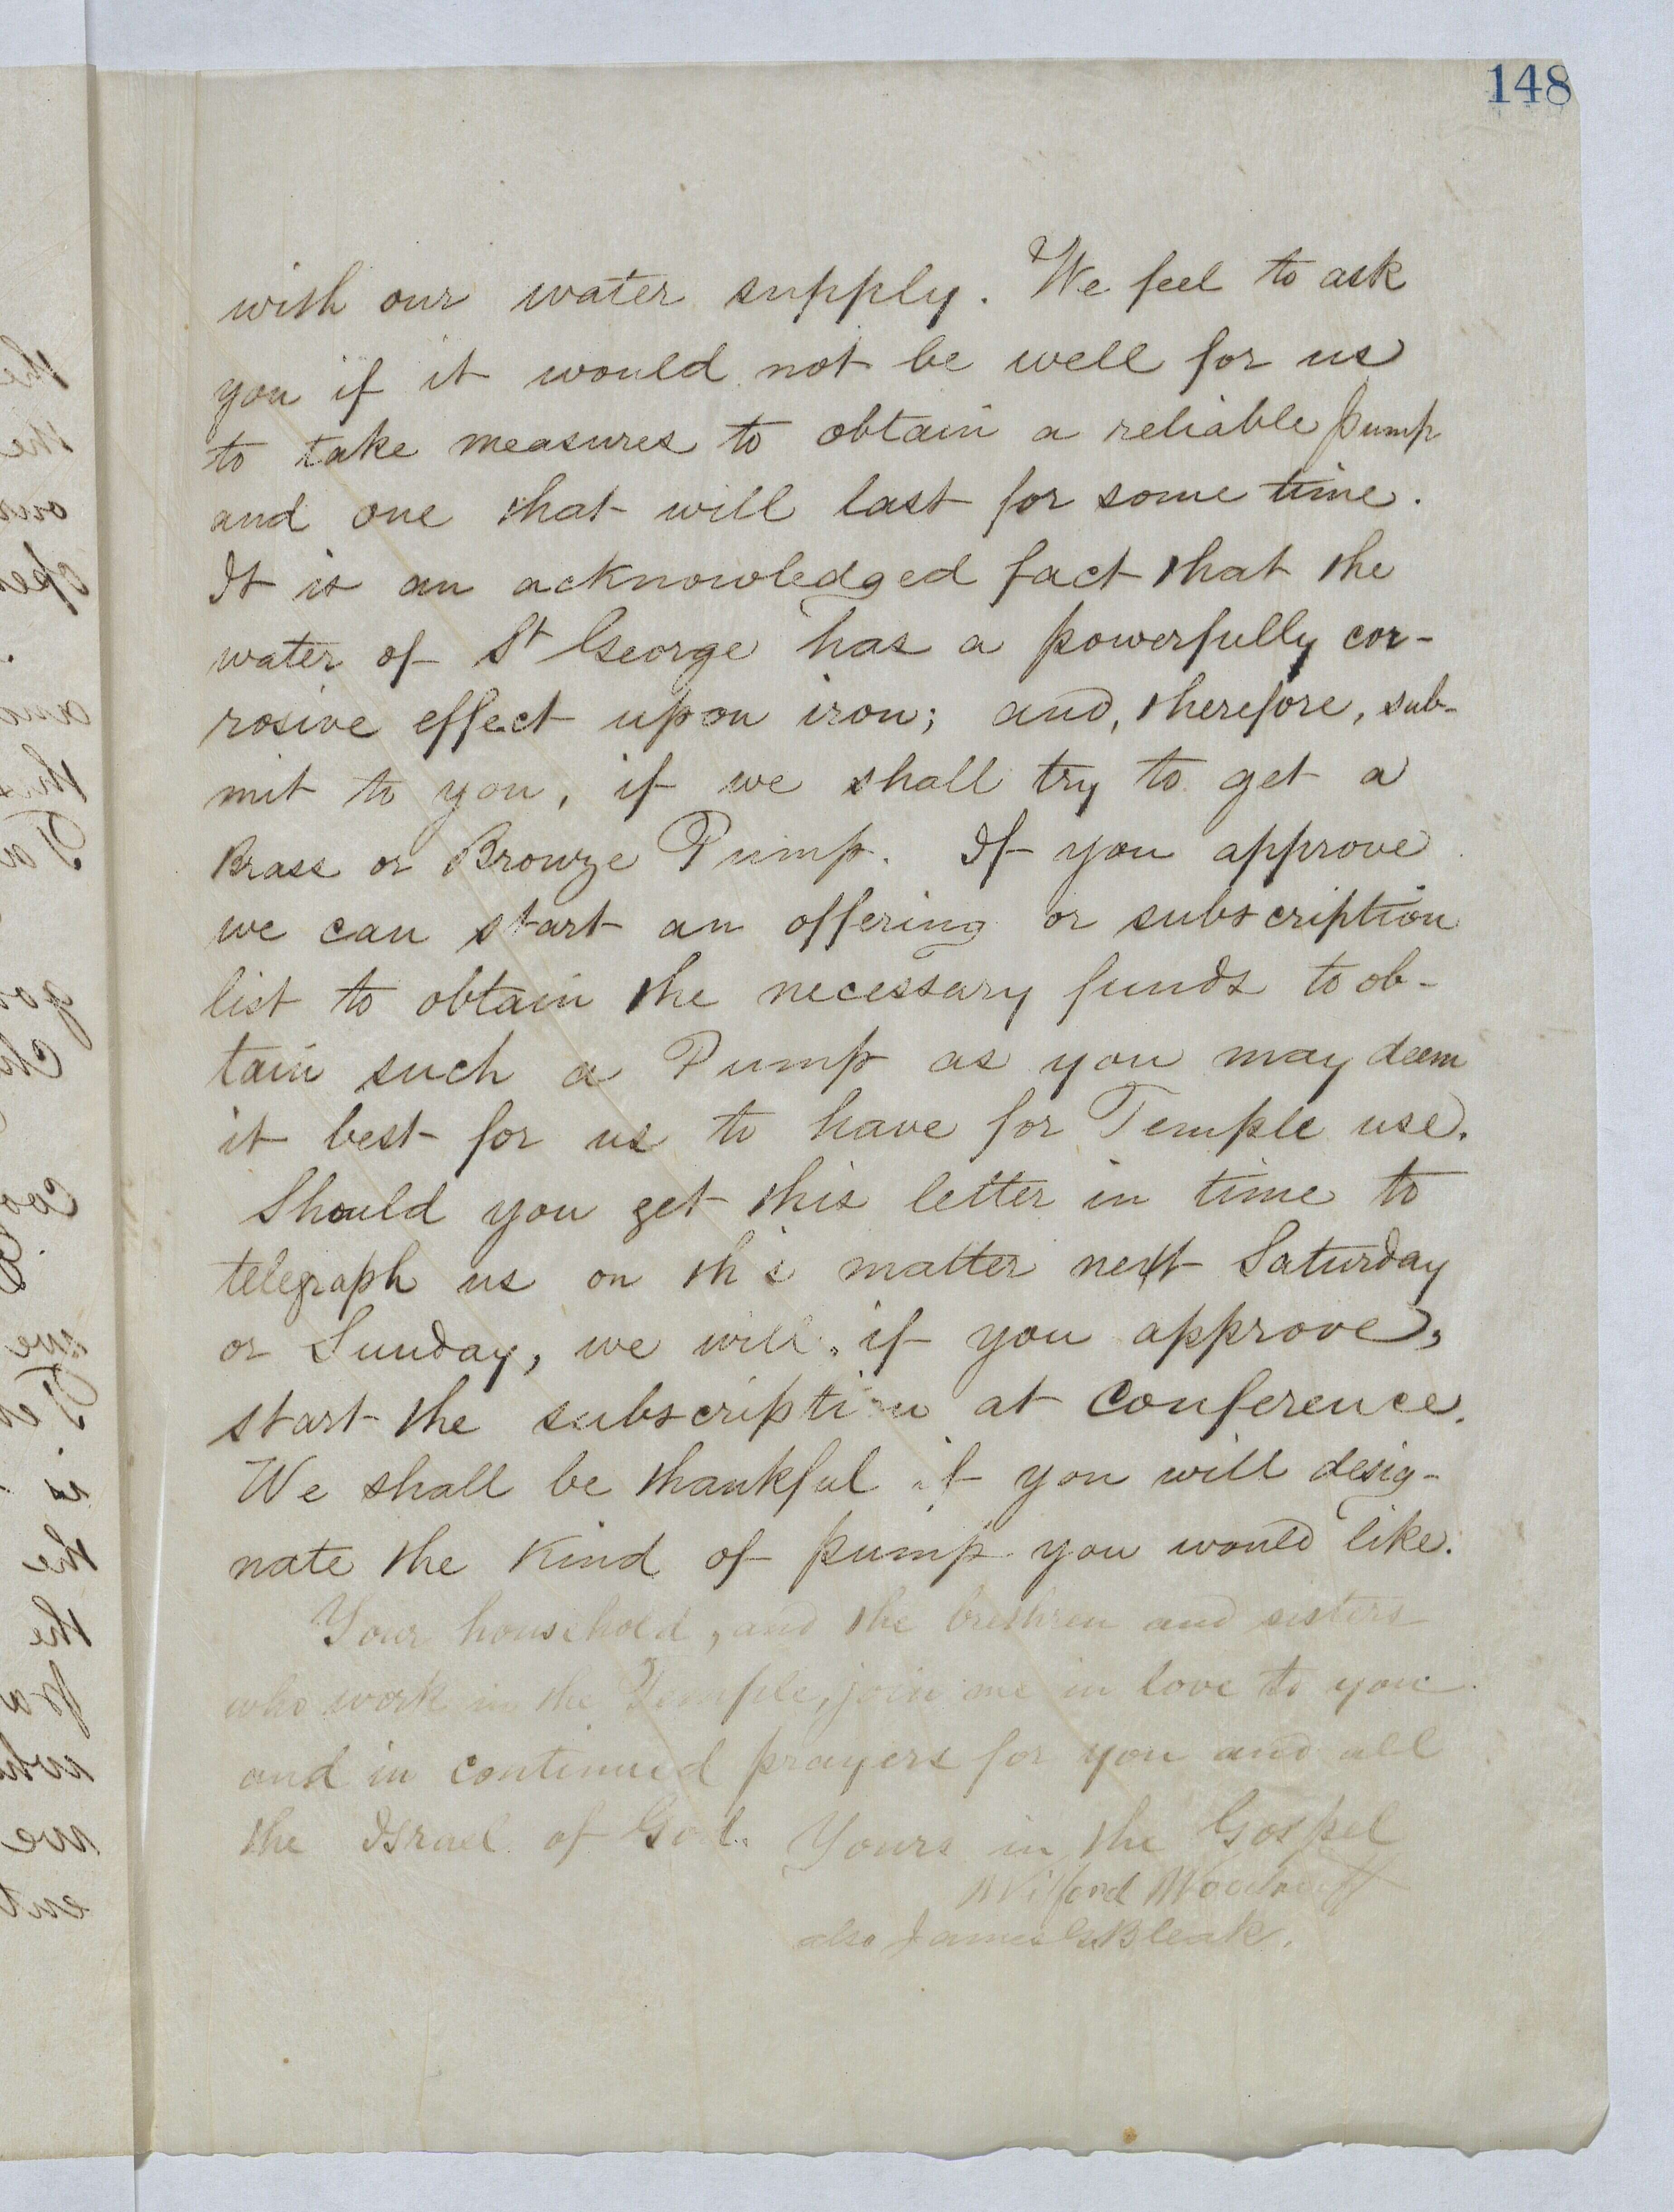 148
with our water supply. We feel to ask
you if it would not be well for us
to take measures to obtain a reliable pump
and one that will last for some time.
It is an acknowledged fact that the
water of St George has a powerfully cor-
rosive effect upon iron; and, therefore, sub-
mit to you, if we shall try to get a
Brass or Bronze Pump. If you approve
we can start an offering or subscription
list to obtain the necessary funds to ob-
tain such a Pump as you may deem
it best for us to have for Temple use.
Should you get this letter in time to
telegraph us on this matter next Saturday
or Sunday, we will, if you approve,
start the subscription at Conference.
We shall be thankful if you will desig-
nate the kind of pump you would like.
Your household, and the brethren and sisters
who work in the Temple, join me in love to you
and in continued prayers for you and all
the Israel of God. Yours in the Gospel
Wilford Woodruff
also James G Bleak.